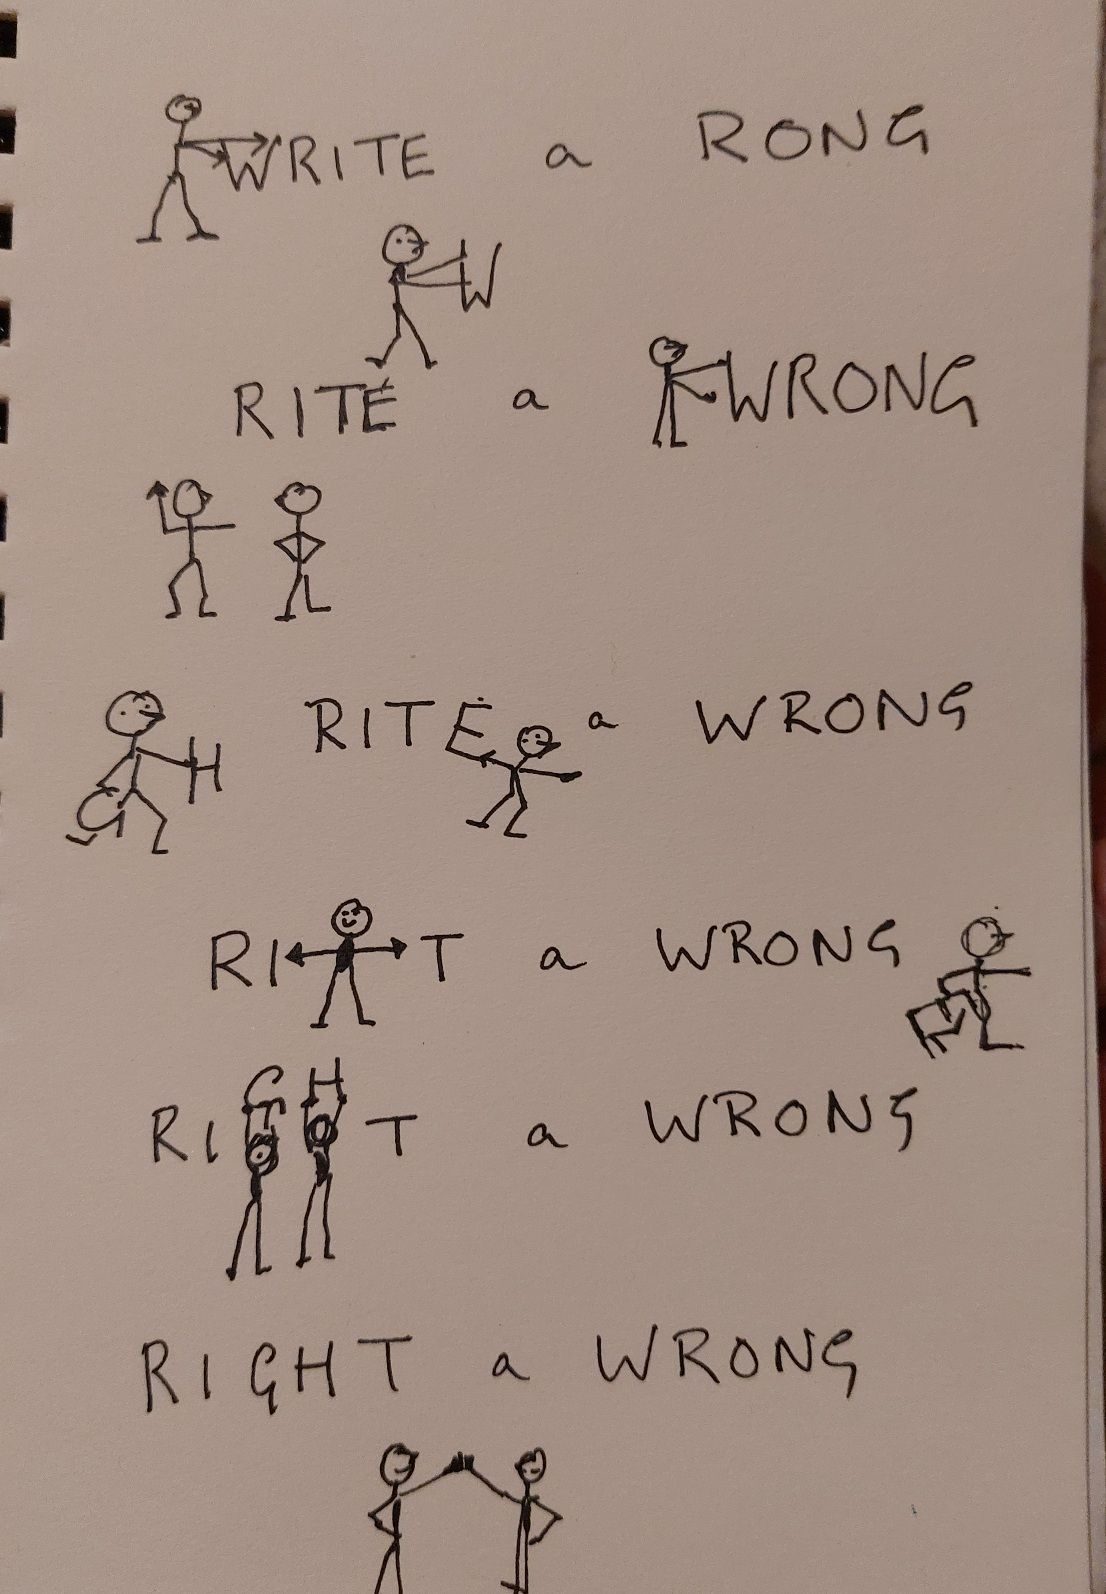 WRITE a RONG
W
RITE a WRONG
G H RITE a WRONG
RI T a WRONG E
RI G H T a WRONG
RIGHT a WRONG